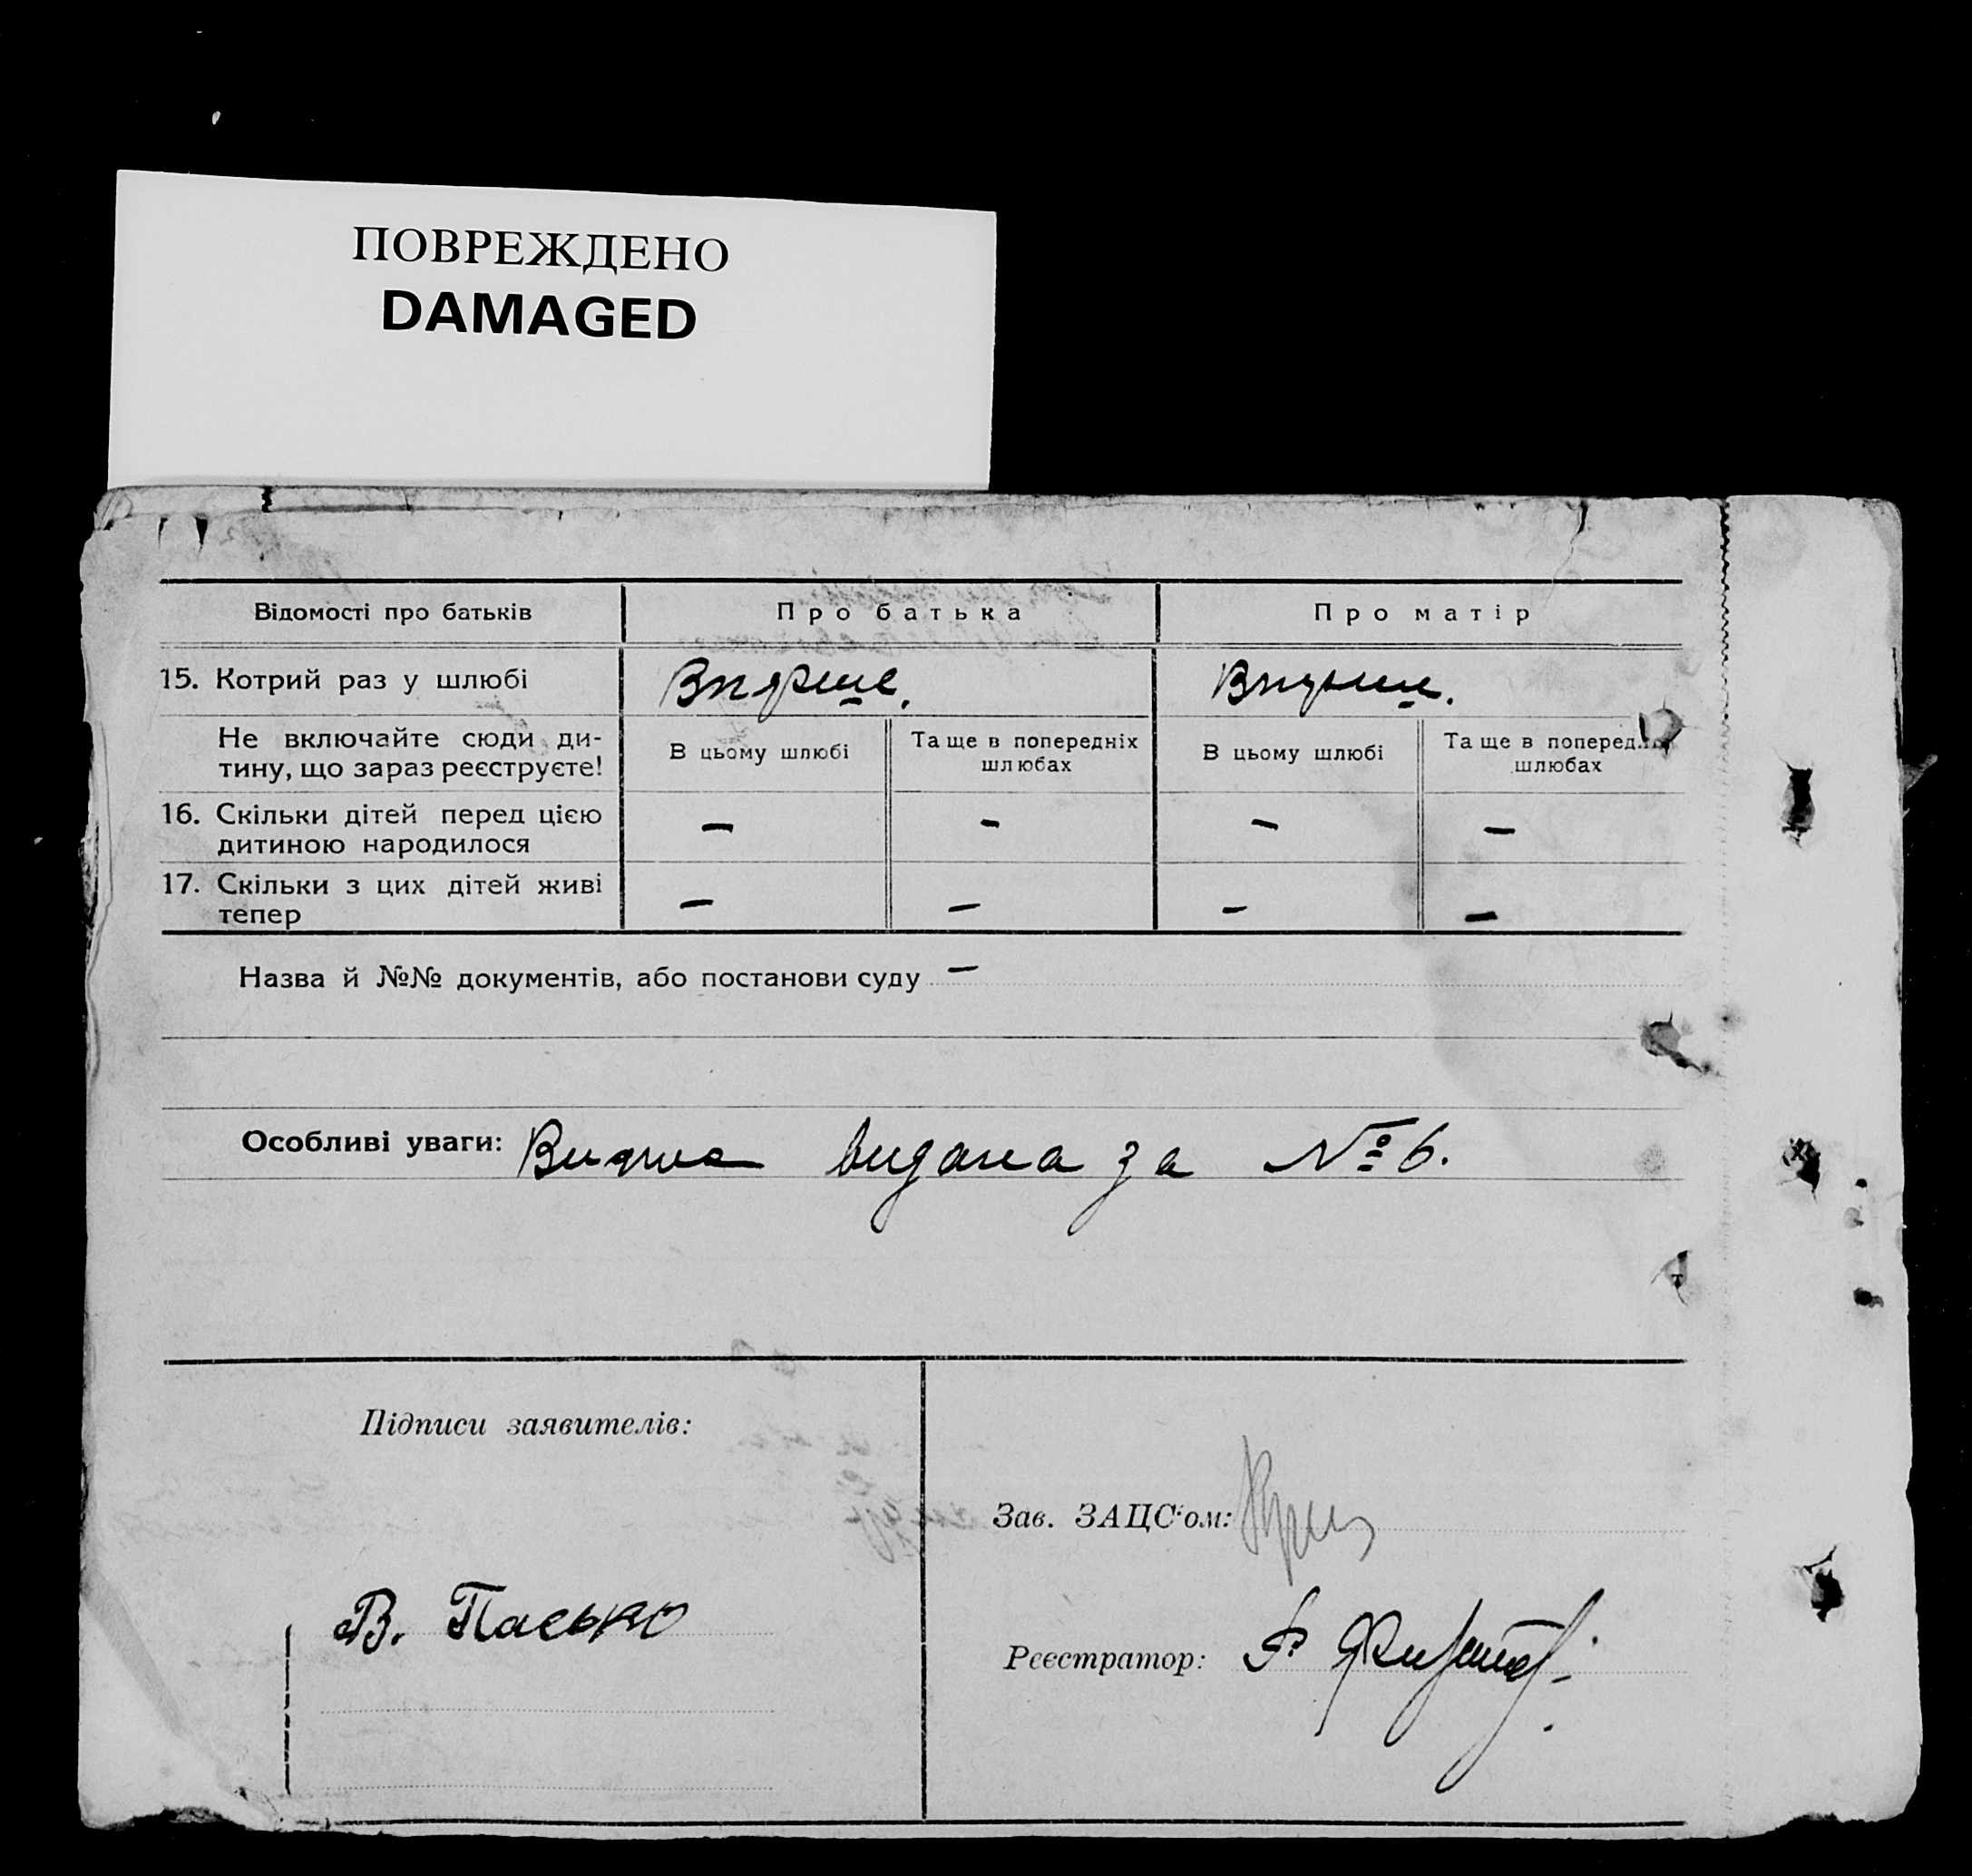 ПОВРЕЖДЕНО
DAMAGED
Відомості про батьків
Про батька
Про матір
15. Котрий раз у шлюбі
Вперше.
Вперше.
Не включайте сюди ди-
тину, що зараз реєструєте!
В цьому шлюбі
Та ще в попередніх
шлюбах
В цьому шлюбі
Та ще в поперед
шлюбах
16. Скільки дітей перед цією
дитиною народилося
—
—
—
—
17. Скільки з цих дітей живі
тепер
—
—
—
—
Назва й №№ документів, або постанови суду —
Особливі уваги: видана за № 6.
Підписи заявителів:
В. Пасько
Зав. ЗАЦС'ом:
Реєстратор: